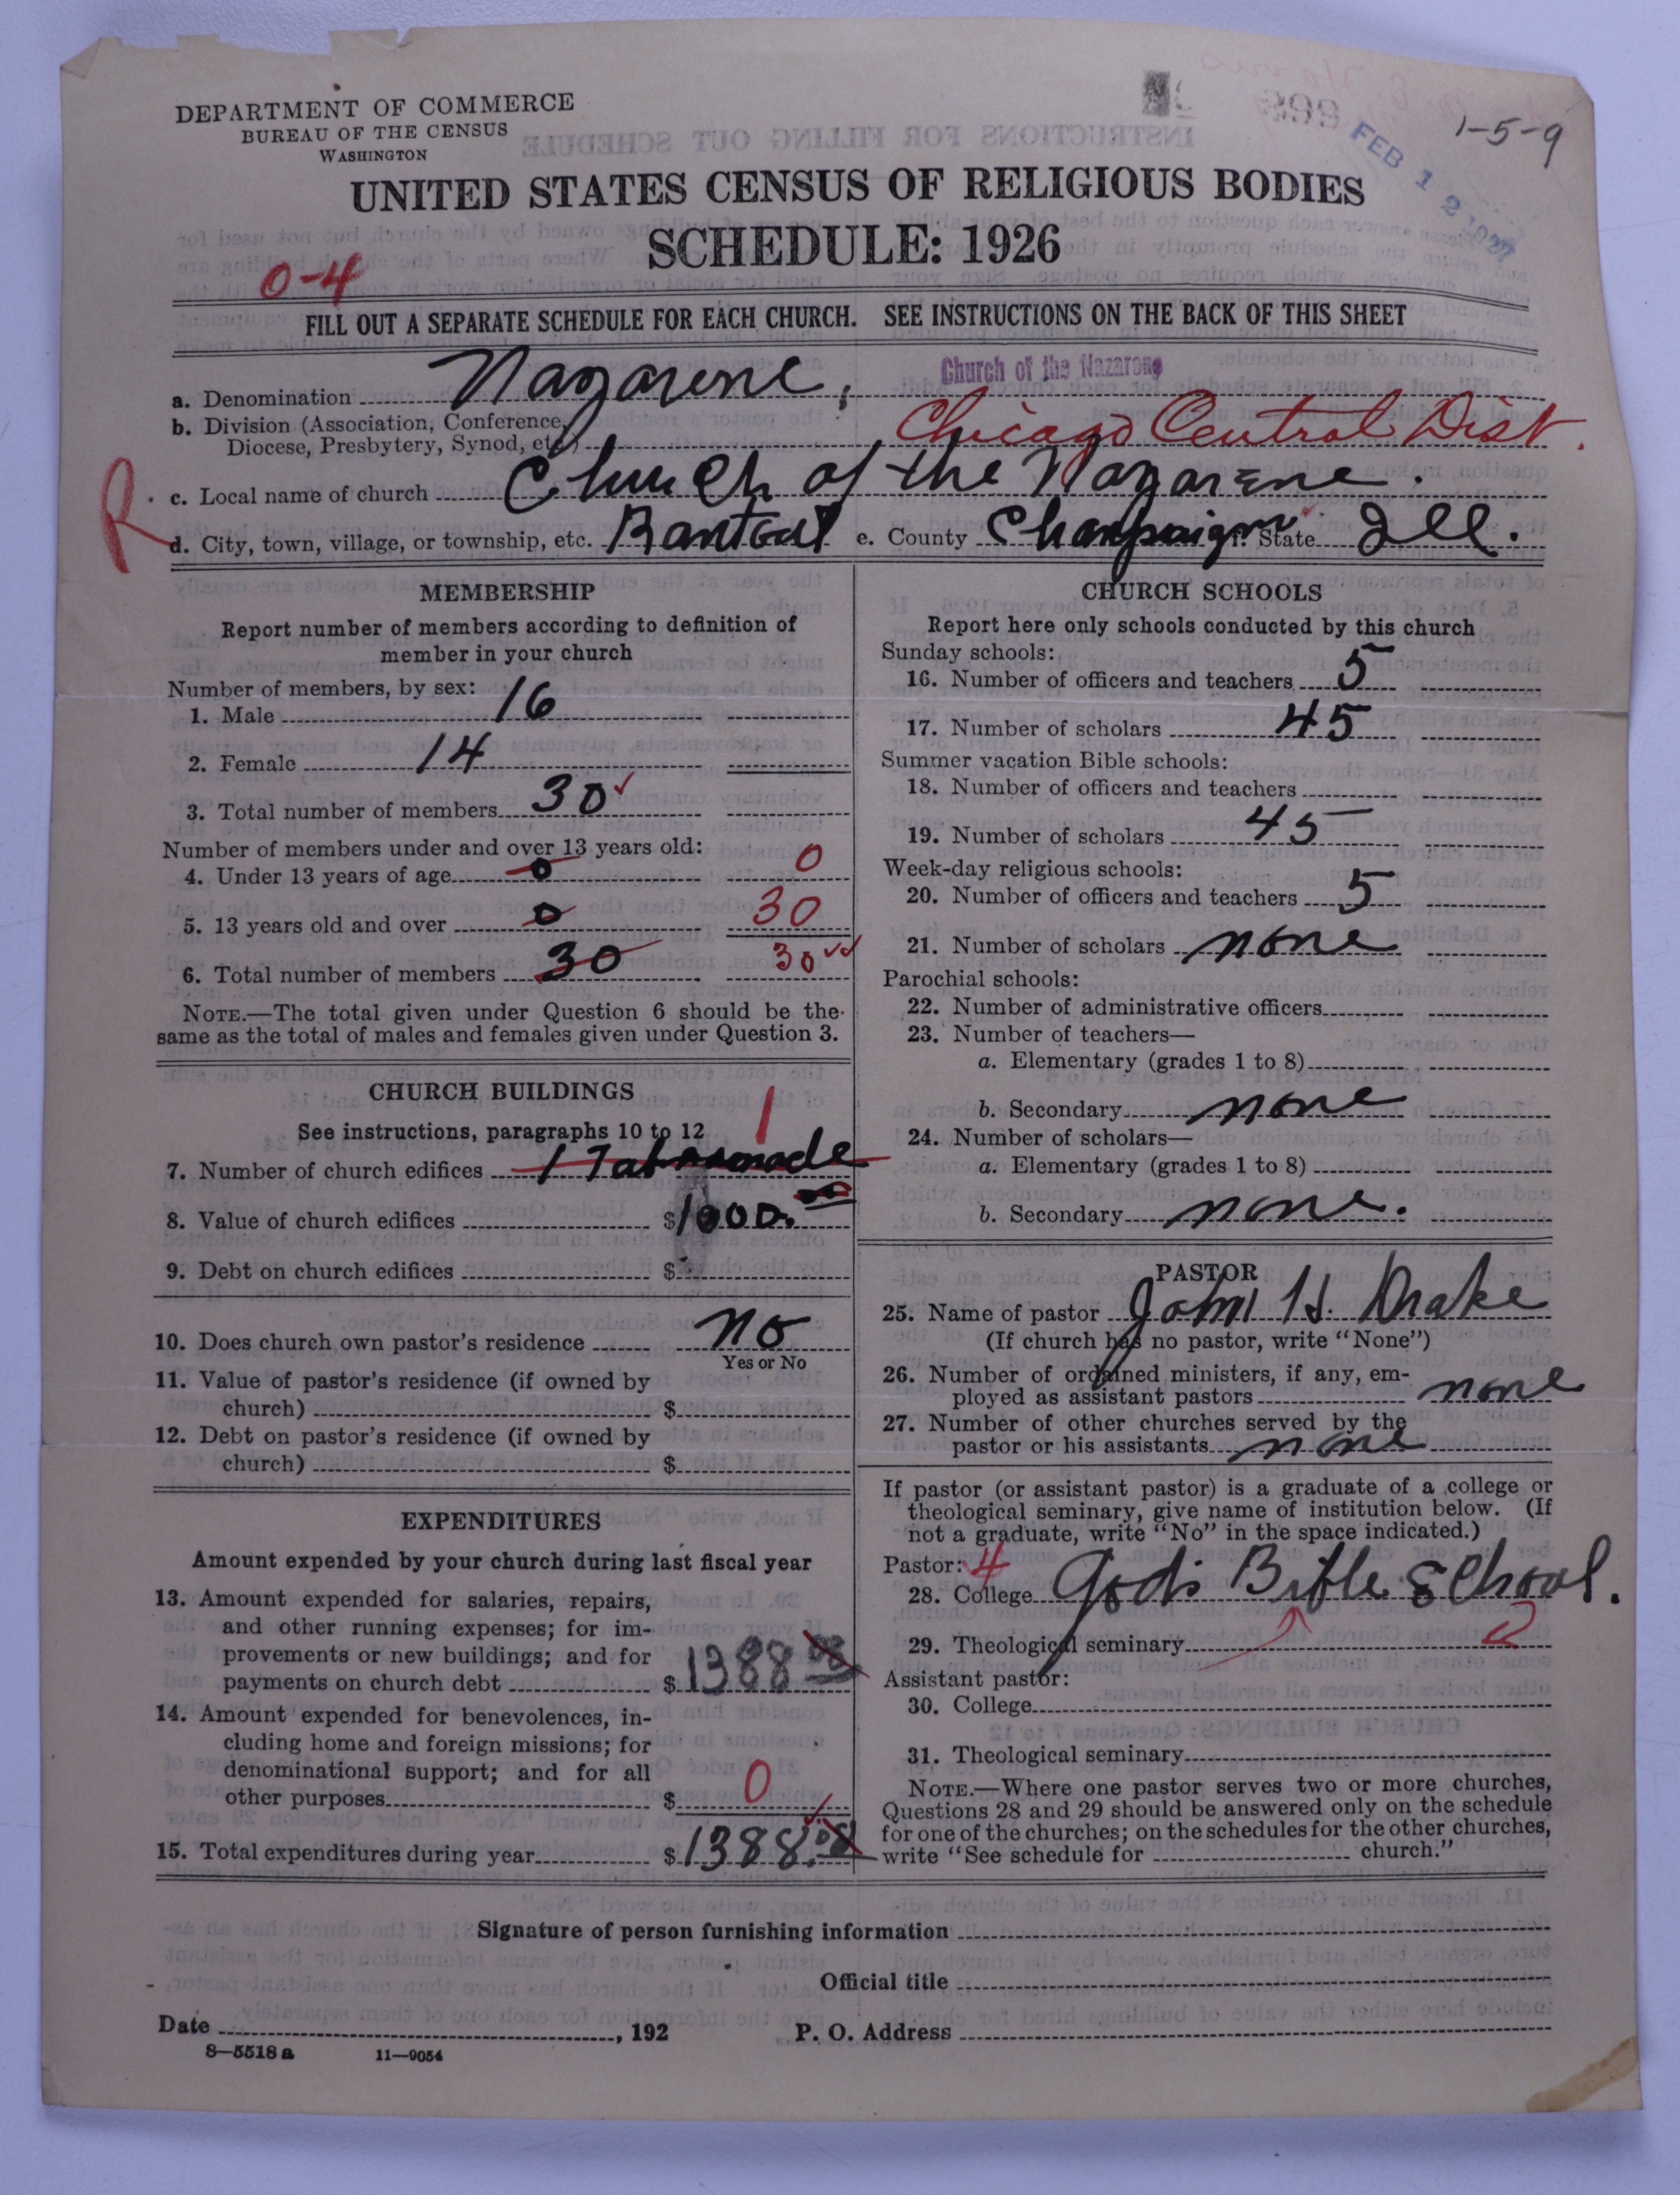 DEPARTMENT OF COMMERCE
BUREAU OF THE CENSUS
WASHINGTON
1-5-9
FEB 12 1927
UNITED STATES CENSUS OF RELIGIOUS BODIES
SCHEDULE: 1926
0-4
FILL OUT A SEPARATE SCHEDULE FOR EACH CHURCH. SEE INSTRUCTIONS ON THE BACK OF THIS SHEET
Church of the Nazarene
a. Denomination Nazarene,
b. Division (Association, Conference,
Diocese, Presbytery, Synod, etc.) Chicago Central Dist.
R
c. Local name of church Church of the Nazarene.
d. City, town, village, or township, etc. Rantoul e. County Champaign f. State Ill.
MEMBERSHIP
Report number of members according to definition of
member in your church
Number of members, by sex:
1. Male 16
2. Female 14
3. Total number of members 30
Number of members under and over 13 years old:
4. Under 13 years of age 0 0
5. 13 years old and over 0 30
6. Total number of members 30 30
NOTE.—The total given under Question 6 should be the
same as the total of males and females given under Question 3.
CHURCH BUILDINGS
See instructions, paragraphs 10 to 12
1
7. Number of church edifices 1 Tabernacle
8. Value of church edifices $1000.00
9. Debt on church edifices $
10. Does church own pastor's residence no
Yes or No
11. Value of pastor's residence (if owned by
church) $
12. Debt on pastor's residence (if owned by
church) $
EXPENDITURES
Amount expended by your church during last fiscal year
13. Amount expended for salaries, repairs,
and other running expenses; for im-
provements or new buildings; and for
payments on church debt $1388
14. Amount expended for benevolences, in-
cluding home and foreign missions; for
denominational support; and for all
other purposes $ 0
15. Total expenditures during year $1388.
CHURCH SCHOOLS
Report here only schools conducted by this church
Sunday schools:
16. Number of officers and teachers 5
17. Number of scholars 45
Summer vacation Bible schools:
18. Number of officers and teachers
19. Number of scholars 45
Week-day religious schools:
20. Number of officers and teachers 5
21. Number of scholars none
Parochial schools:
22. Number of administrative officers
23. Number of teachers—
a. Elementary (grades 1 to 8)
b. Secondary none
24. Number of scholars—
a. Elementary (grades 1 to 8)
b. Secondary none.
PASTOR
25. Name of pastor John H. Drake
(If church has no pastor, write "None")
26. Number of ordained ministers, if any, em-
ployed as assistant pastors none
27. Number of other churches served by the
pastor or his assistants none
If pastor (or assistant pastor) is a graduate of a college or
theological seminary, give name of institution below. (If
not a graduate, write "No" in the space indicated.)
Pastor: 4
28. College God's Bible School.
29. Theological seminary
Assistant pastor:
30. College
31. Theological seminary
NOTE.—Where one pastor serves two or more churches,
Questions 28 and 29 should be answered only on the schedule
for one of the churches; on the schedules for the other churches,
write "See schedule for church."
Signature of person furnishing information
Official title
Date , 192 P. O. Address
8—5518 a 11—9054